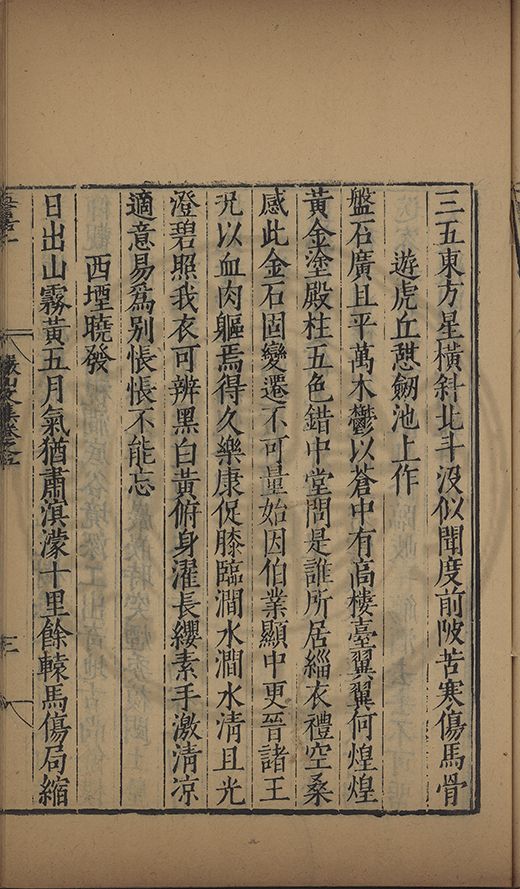 三五東方星橫斜北斗沒似聞度前陂苦寒傷馬骨
遊虎丘憇劒池上作
盤石廣且平萬木鬱以蒼中有高樓臺翼翼何煌煌
黃金塗殿柱五色錯中堂問是誰所居緇衣禮空桑
感此金石固變遷不可量始因伯業顯中更晉諸王
况以血肉軀焉得久樂康促膝臨澗水澗水清且光
澄碧照我衣可辨黑白黃俯身濯長纓素手激清凉
適意易爲別悵悵不能忘
西堙曉發
日出山霧黃五月氣猶肅滇濛十里餘轅馬傷局縮